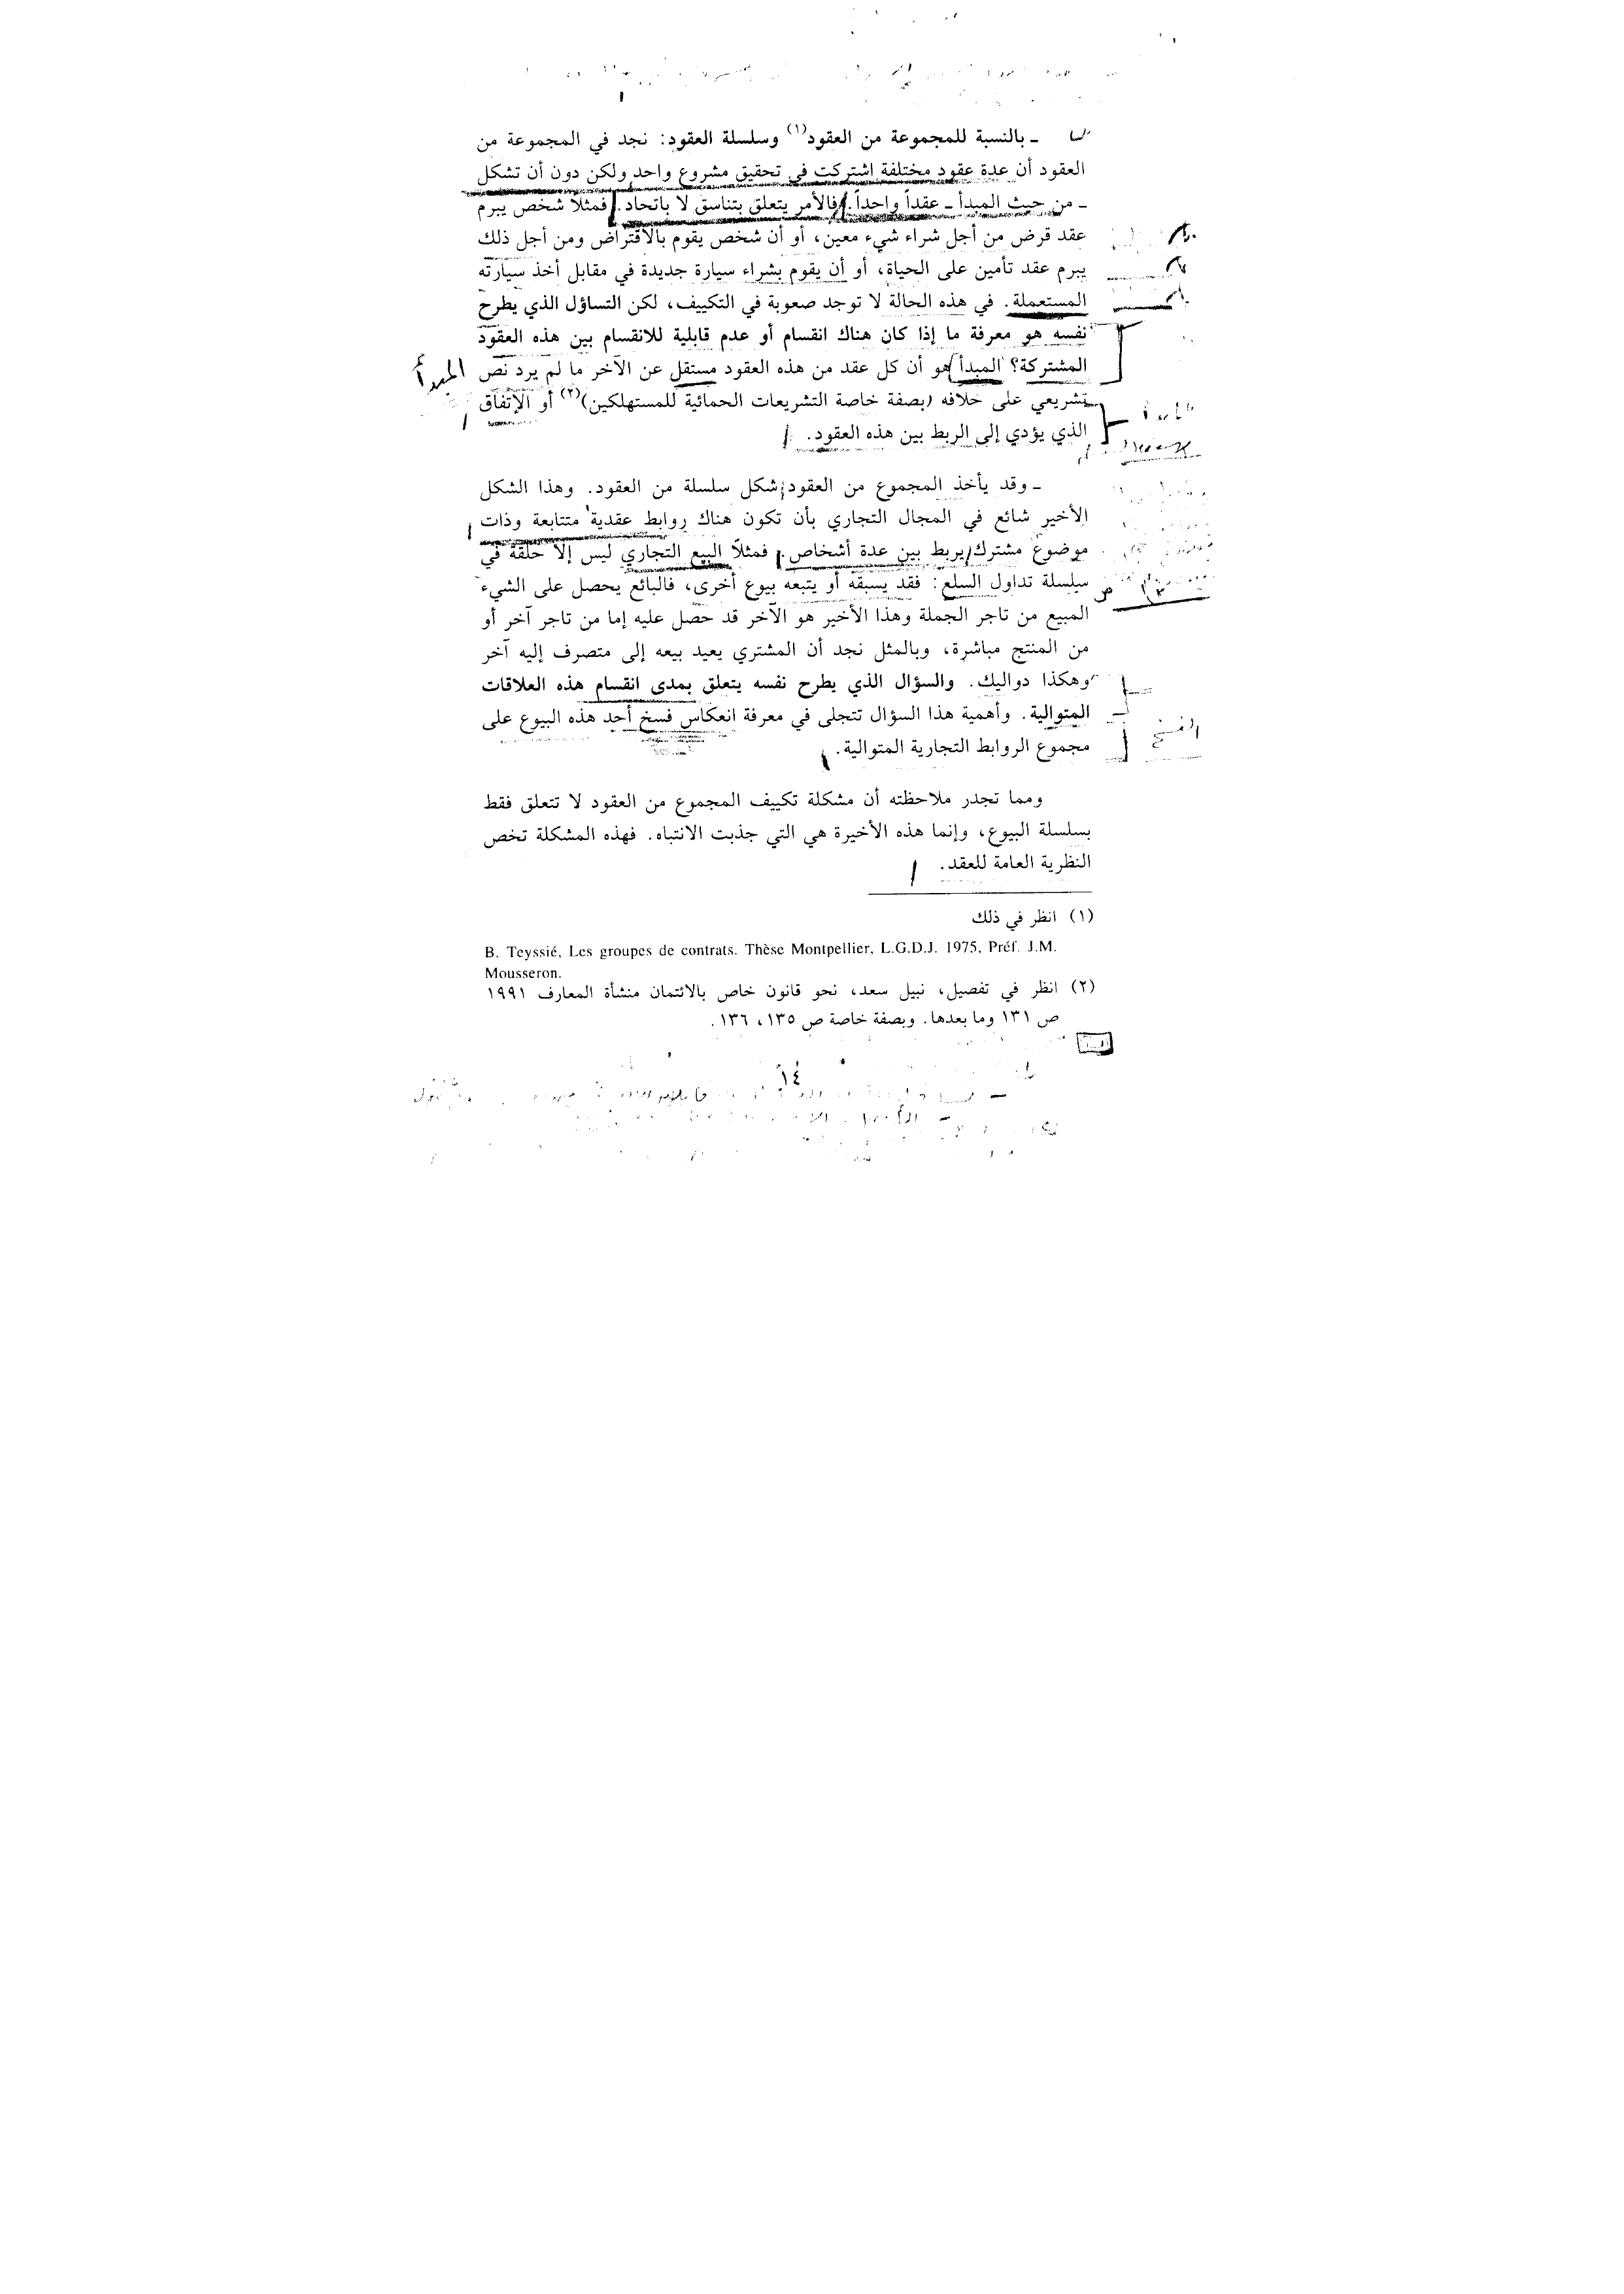 ـ بالنسبة للمجموعة من العقود(١) وسلسلة العقود: نجد في المجموعة من
العقود أن عدة عقود مختلفة اشتركت في تحقيق مشروع واحد ولكن دون أن تشكل
ـ من حيث المبدأ ـ عقداً واحداً. فالأمر يتعلق بتناسق لا باتحاد. فمثلاً شخص يبرم
عقد قرض من أجل شراء شيء معين، أو أن شخص يقوم بالاقتراض ومن أجل ذلك
يبرم عقد تأمين على الحياة، أو أن يقوم بشراء سيارة جديدة في مقابل أخذ سيارته
المستعملة. في هذه الحالة لا توجد صعوبة في التكييف، لكن التساؤل الذي يطرح
نفسه هو معرفة ما إذا كان هناك انقسام أو عدم قابلية للانقسام بين هذه العقود
المشتركة؟ المبدأ هو أن كل عقد من هذه العقود مستقل عن الآخر ما لم يرد نص
المبدأ
تشريعي على خلافه (بصفة خاصة التشريعات الحمائية للمستهلكين)(٢) أو الإتفاق
الذي يؤدي إلى الربط بين هذه العقود.
ـ وقد يأخذ المجموع من العقود شكل سلسلة من العقود. وهذا الشكل
الأخير شائع في المجال التجاري بأن تكون هناك روابط عقدية متتابعة وذات
موضوع مشترك يربط بين عدة أشخاص. فمثلاً البيع التجاري ليس إلا حلقة في
سلسلة تداول السلع: فقد يسبقه أو يتبعه بيوع أخرى، فالبائع يحصل على الشيء
المبيع من تاجر الجملة وهذا الأخير هو الآخر قد حصل عليه إما من تاجر آخر أو
من المنتج مباشرة، وبالمثل نجد أن المشتري يعيد بيعه إلى متصرف إليه آخر
وهكذا دواليك. والسؤال الذي يطرح نفسه يتعلق بمدى انقسام هذه العلاقات
المتوالية. وأهمية هذا السؤال تتجلى في معرفة انعكاس فسخ أحد هذه البيوع على
الفسخ
مجموع الروابط التجارية المتوالية.
ومما تجدر ملاحظته أن مشكلة تكييف المجموع من العقود لا تتعلق فقط
بسلسلة البيوع، وإنما هذه الأخيرة هي التي جذبت الانتباه. فهذه المشكلة تخص
النظرية العامة للعقد.
(١) انظر في ذلك
B. Teyssié, Les groupes de contrats. Thèse Montpellier, L.G.D.J. 1975, Préf. J.M.
Mousseron.
(٢) انظر في تفصيل، نبيل سعد، نحو قانون خاص بالائتمان منشأة المعارف ١٩٩١
ص ١٣١ وما بعدها. وبصفة خاصة ص ١٣٥، ١٣٦.
١٤